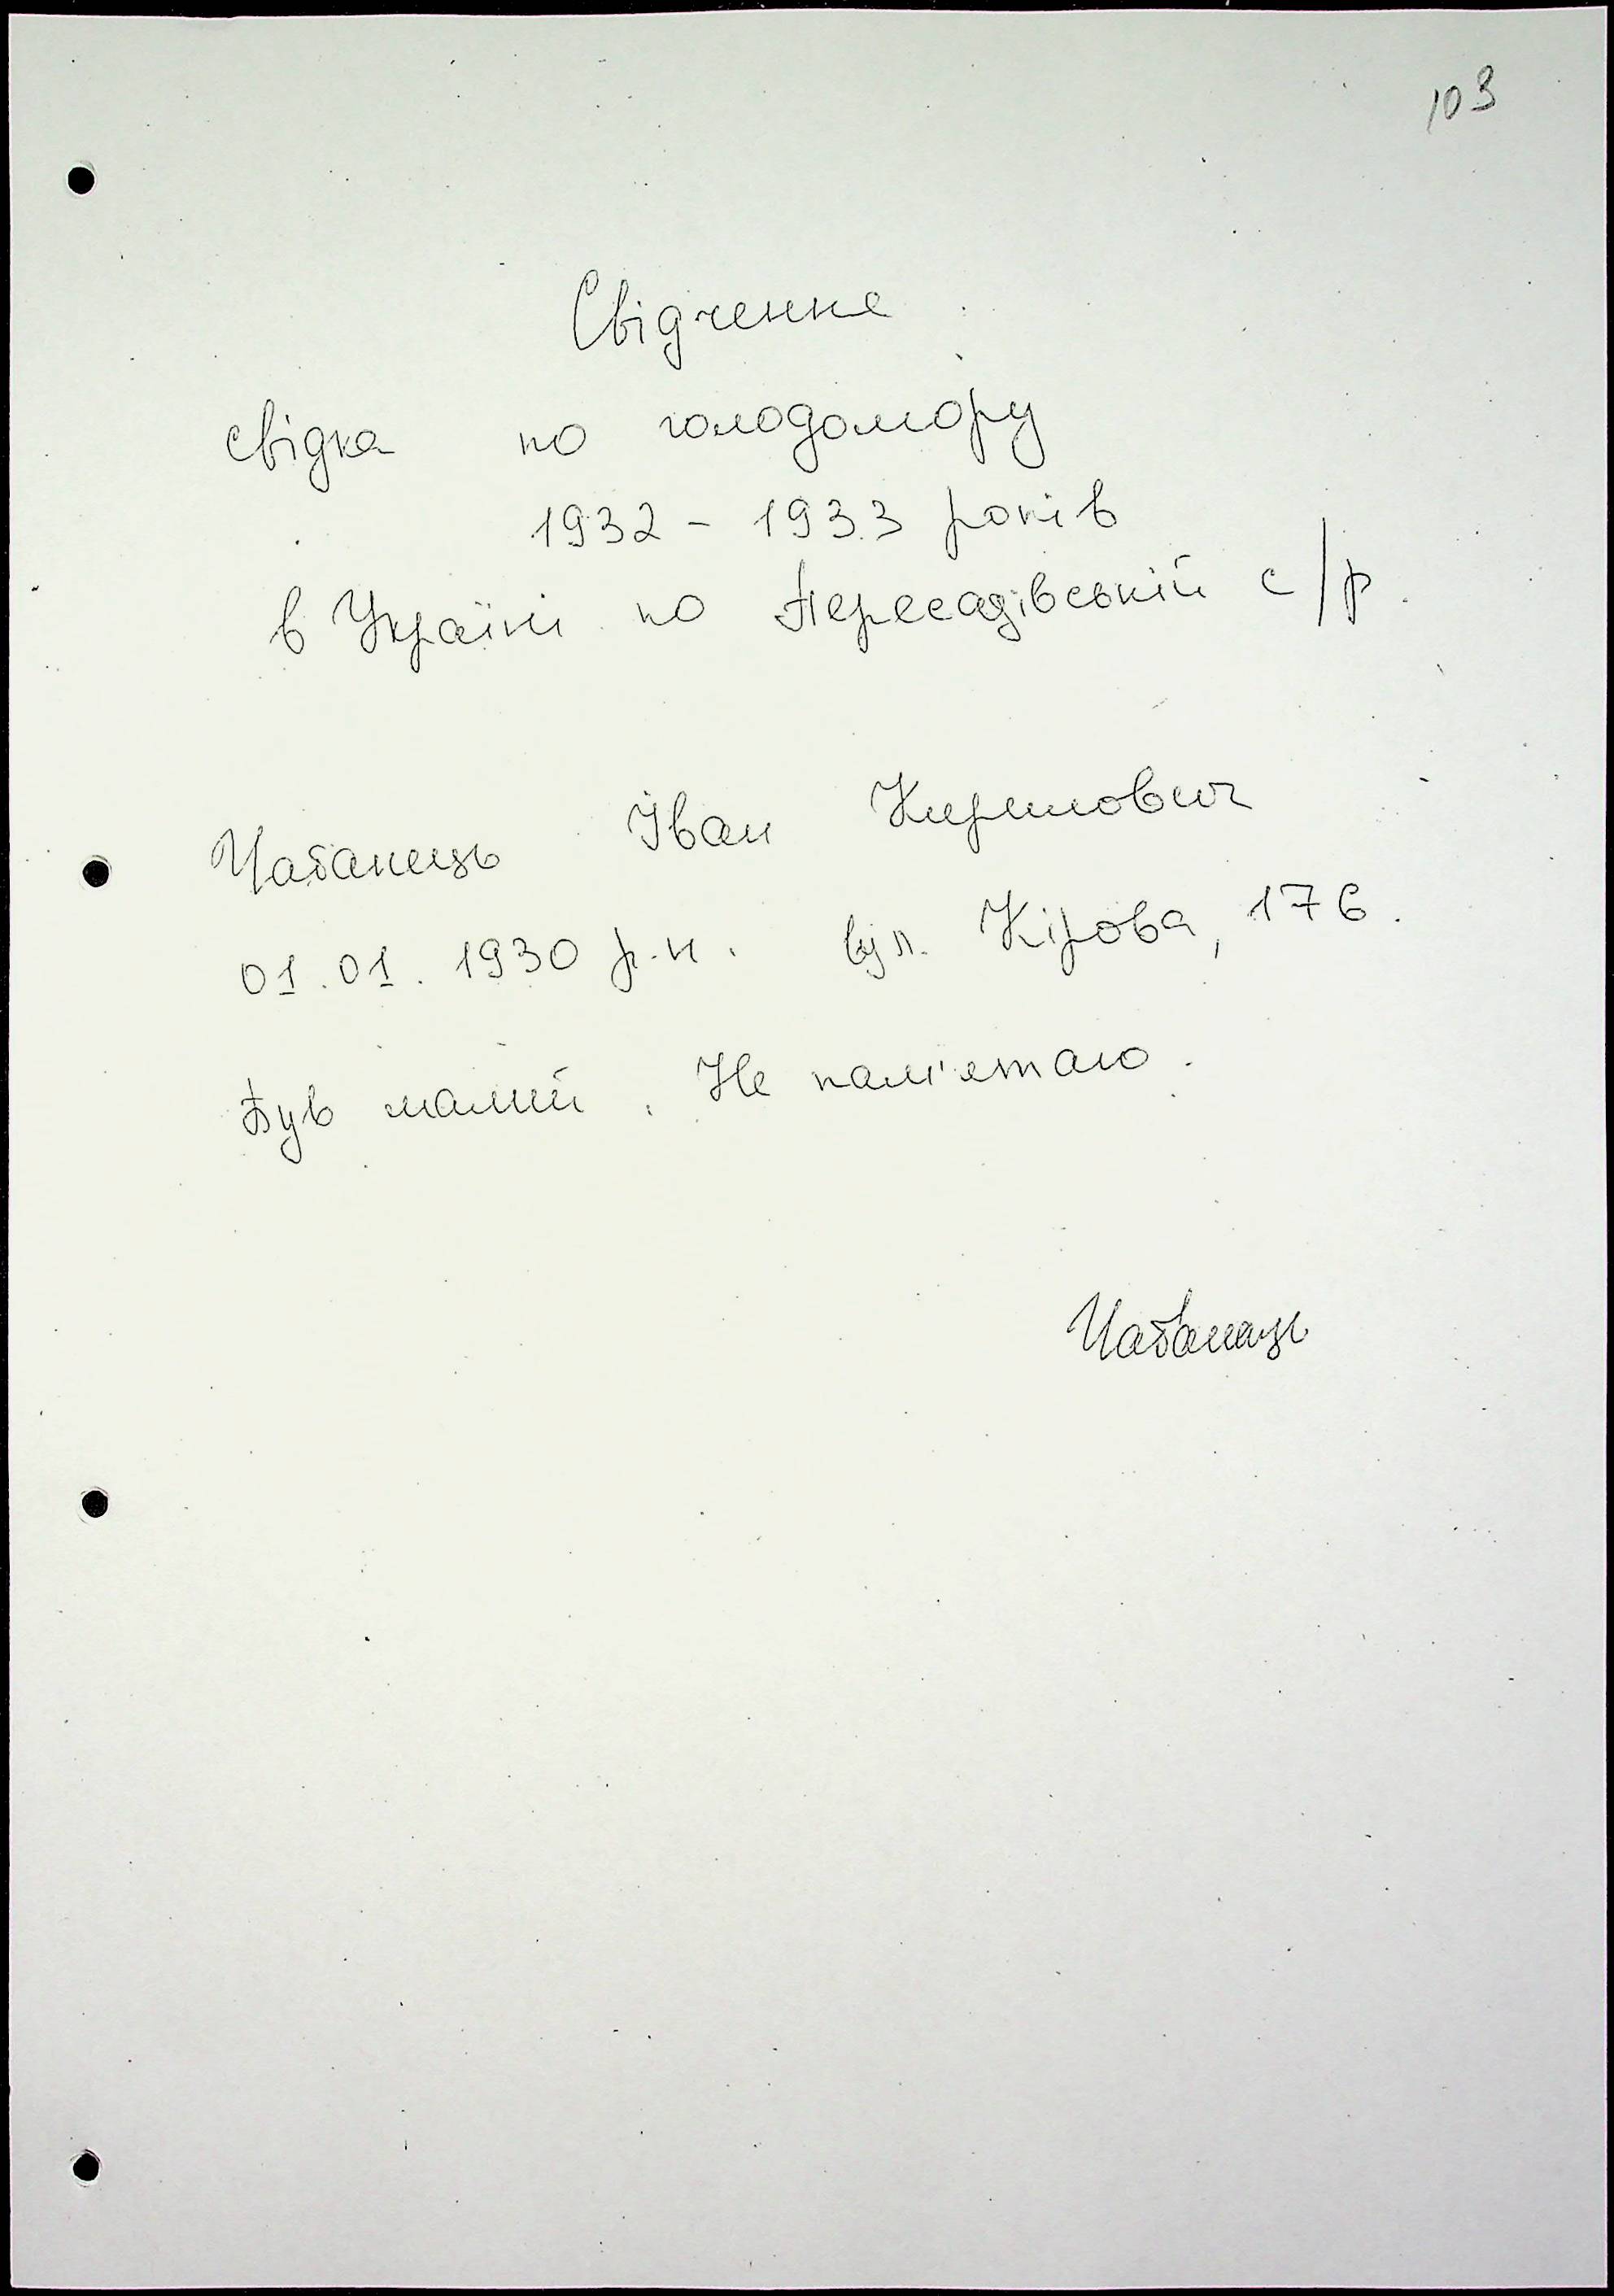 103
Свідчення
свідка по голодомору
1932 - 1933 років
в Україні по Пересадівській с/р.
Чабанець Іван Кирилович
01.01.1930 р.н. вул. Кірова, 176.
Був малий. Не пам'ятаю.
Чабанець